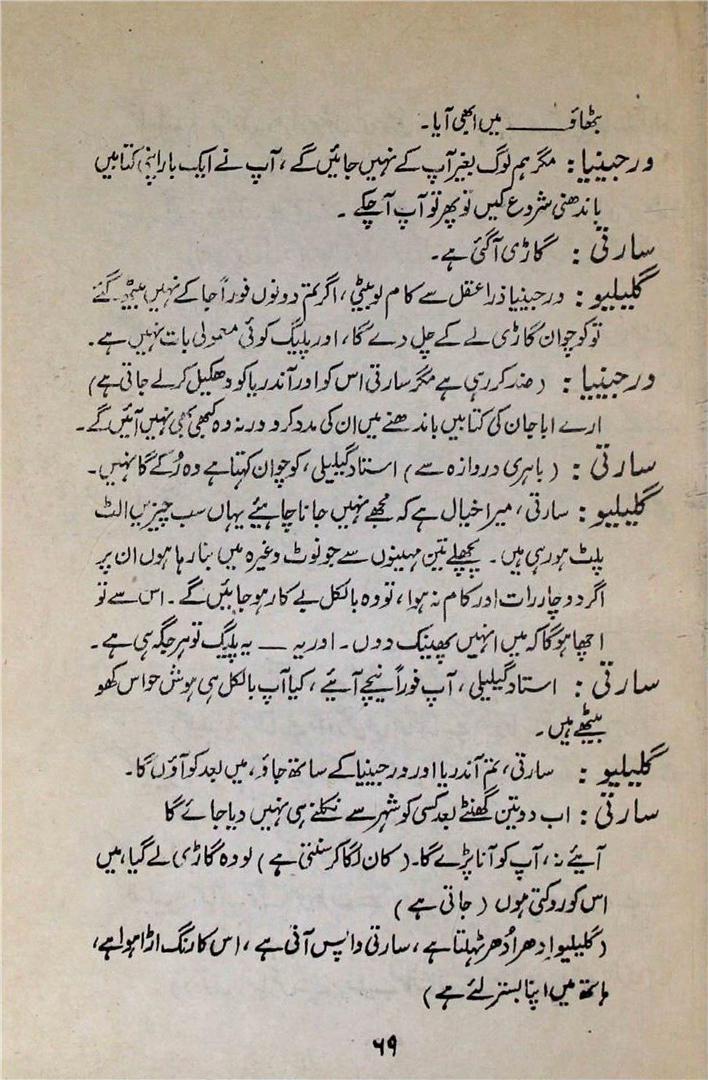 بٹھاؤ ــــ میں ابھی آیا۔
ورجینیا : مگر ہم لوگ بغیر آپ کے نہیں جائیں گے ، آپ نے ایک بار اپنی کتابیں
باندھنی شروع کیں تو پھر تو آپ آ چکے ۔
سارتی : گاڑی آگئی ہے۔
گلیلیو : ورجینیا ذرا عقل سے کام لو بیٹی ، اگر تم دونوں فوراً جا کے نہیں بیٹھ گئے
تو کوچوان گاڑی لے کے چل دے گا ، اور پلیگ کوئی معمولی بات نہیں ہے۔
ورجینیا : (ضد کر رہی ہے مگر سارتی اس کو اور آندریا کو دھکیل کر لے جاتی ہے)
ارے ابا جان کی کتابیں باندھنے میں ان کی مدد کرو ورنہ وہ کبھی بھی نہیں آئیں گے۔
سارتی : (باہری دروازہ سے) استاد گیلیلی ، کوچوان کہتا ہے وہ رُکے گا نہیں۔
گلیلیو : سارتی ، میرا خیال ہے کہ مجھے نہیں جانا چاہیئے یہاں سب چیزیں الٹ
پلٹ ہو رہی ہیں۔ پچھلے تین مہینوں سے جو نوٹ وغیرہ میں بنا رہا ہوں ان پر
اگر دو چار رات اور کام نہ ہوا ، تو وہ بالکل بے کار ہو جائیں گے ۔ اس سے تو
اچھا ہوگا کہ میں انہیں پھینک دوں۔ اور یہ ــ یہ پلیگ تو ہر جگہ ہی ہے۔
سارتی : استاد گیلیلی ، آپ فوراً نیچے آئیے ، کیا آپ بالکل ہی ہوش حواس کھو
بیٹھے ہیں۔
گلیلیو : سارتی ، تم آندریا اور ورجینیا کے ساتھ جاؤ ، میں بعد کو آؤں گا۔
سارتی : اب دو تین گھنٹے بعد کسی کو شہر سے نکلنے ہی نہیں دیا جائے گا
آیئے نہ ، آپ کو آنا پڑے گا۔ (کان لگا کر سنتی ہے) لو وہ گاڑی لے گیا ، میں
اس کو روکتی ہوں (جاتی ہے)
(گلیلیو ادھر اُدھر ٹہلتا ہے ، سارتی واپس آتی ہے ، اس کا رنگ اڑا ہوا ہے ،
ہاتھ میں اپنا بستر لئے ہے)
۶۹